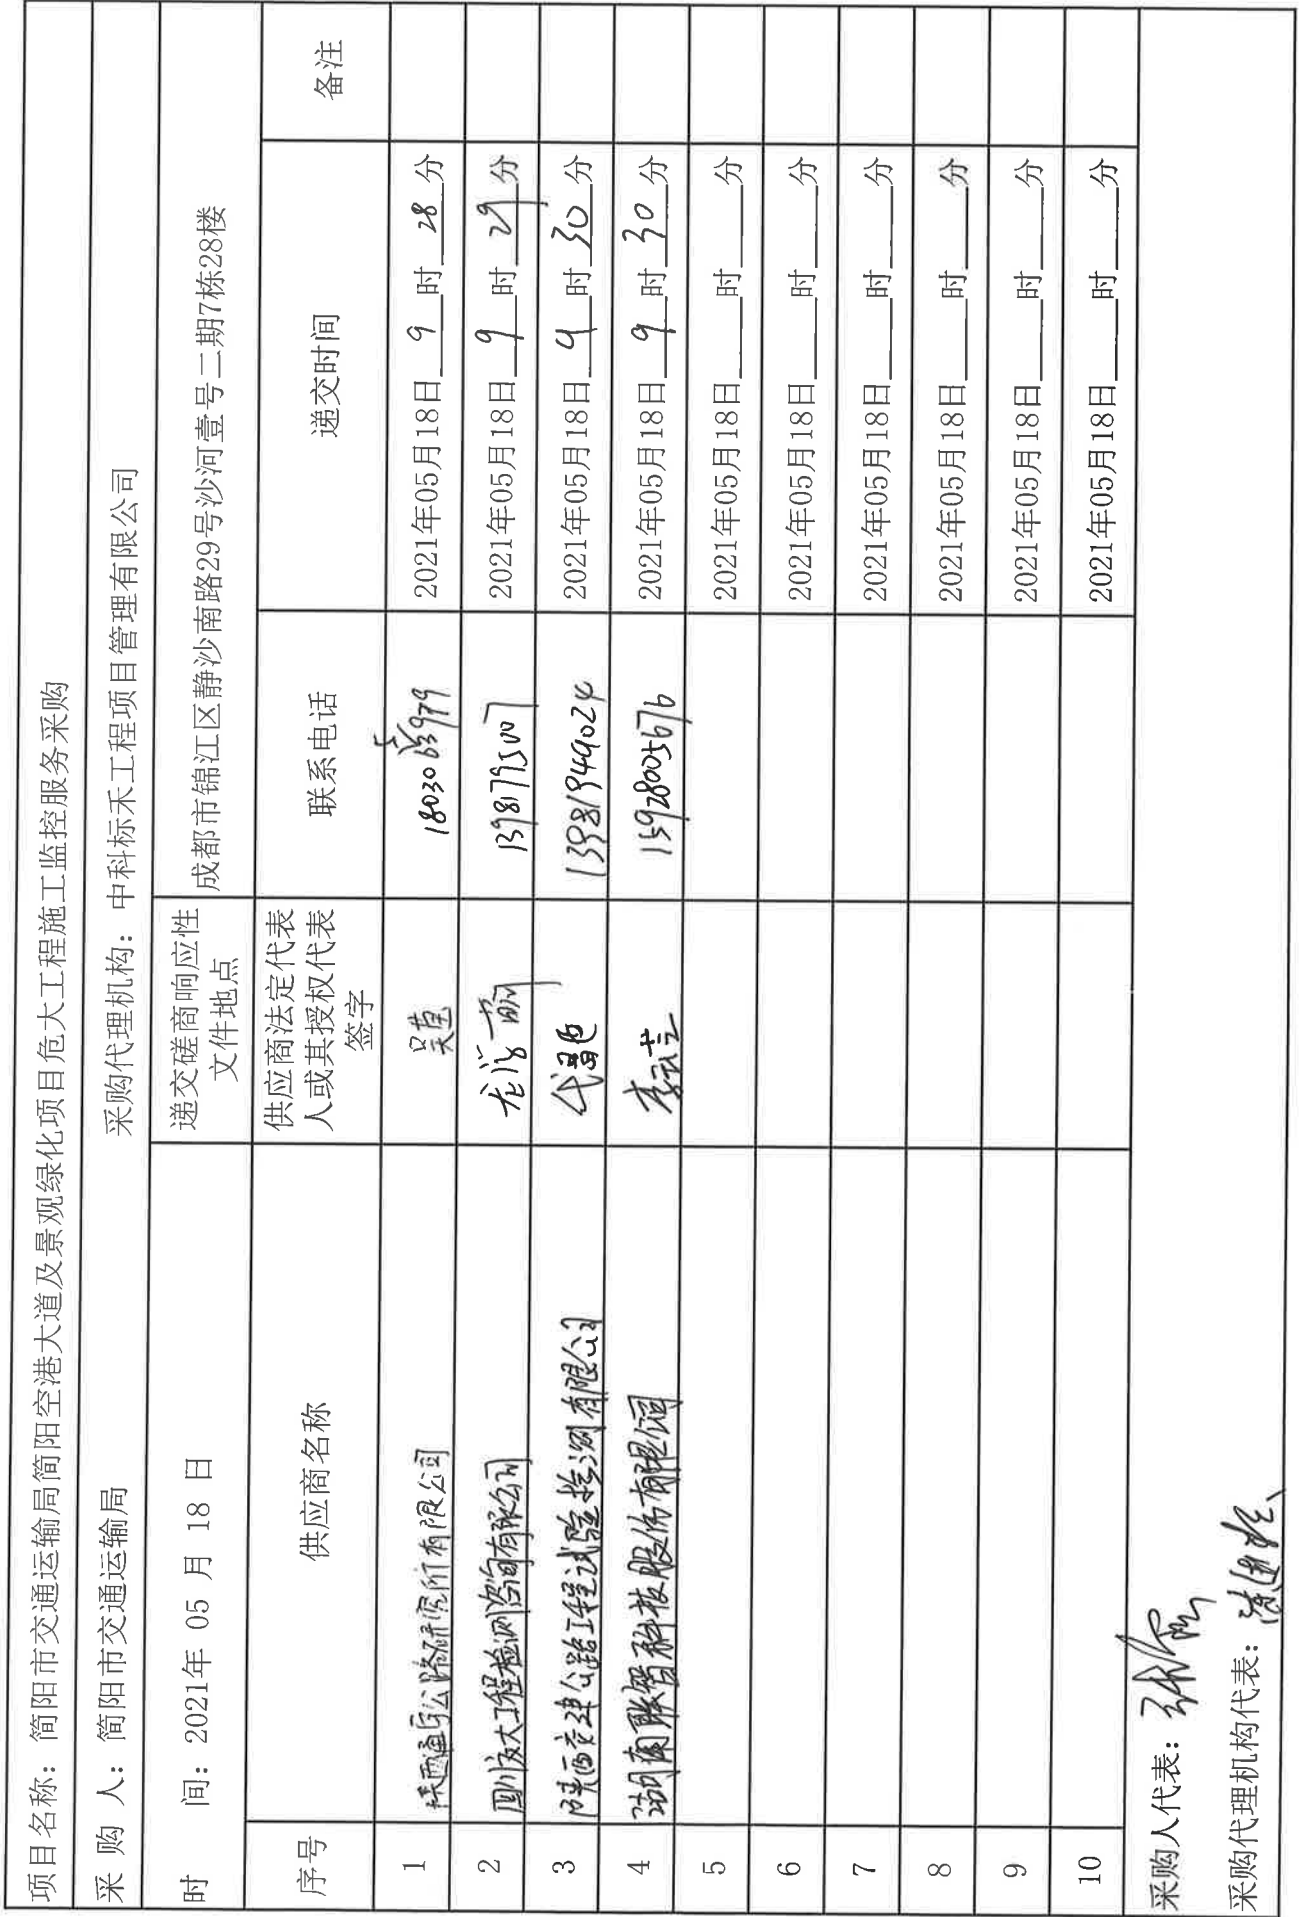 项目名称：简阳市交通运输局简阳空港大道及景观绿化项目危大工程施工监控服务采购
采 购 人：简阳市交通运输局 采购代理机构：中科标禾工程项目管理有限公司
时 间：2021年 05 月 18 日 递交磋商响应性文件地点 成都市锦江区静沙南路29号沙河壹号二期7栋28楼
序号 供应商名称 供应商法定代表人或其授权代表签字 联系电话 递交时间 备注
1 陕西通宇公路研究所有限公司 吴莲 2021年05月18日 9 时 28 分
2 四川友大工程检测咨询有限公司 2021年05月18日 9 时 29 分
3 陕西交建公路工程试验检测有限公司 13981949024 2021年05月18日 9 时 30 分
4 湖南联智科技股份有限公司 李云芸 15928005676 2021年05月18日 9 时 30 分
5 2021年05月18日 时 分
6 2021年05月18日 时 分
7 2021年05月18日 时 分
8 2021年05月18日 时 分
9 2021年05月18日 时 分
10 2021年05月18日 时 分
采购人代表：
采购代理机构代表：